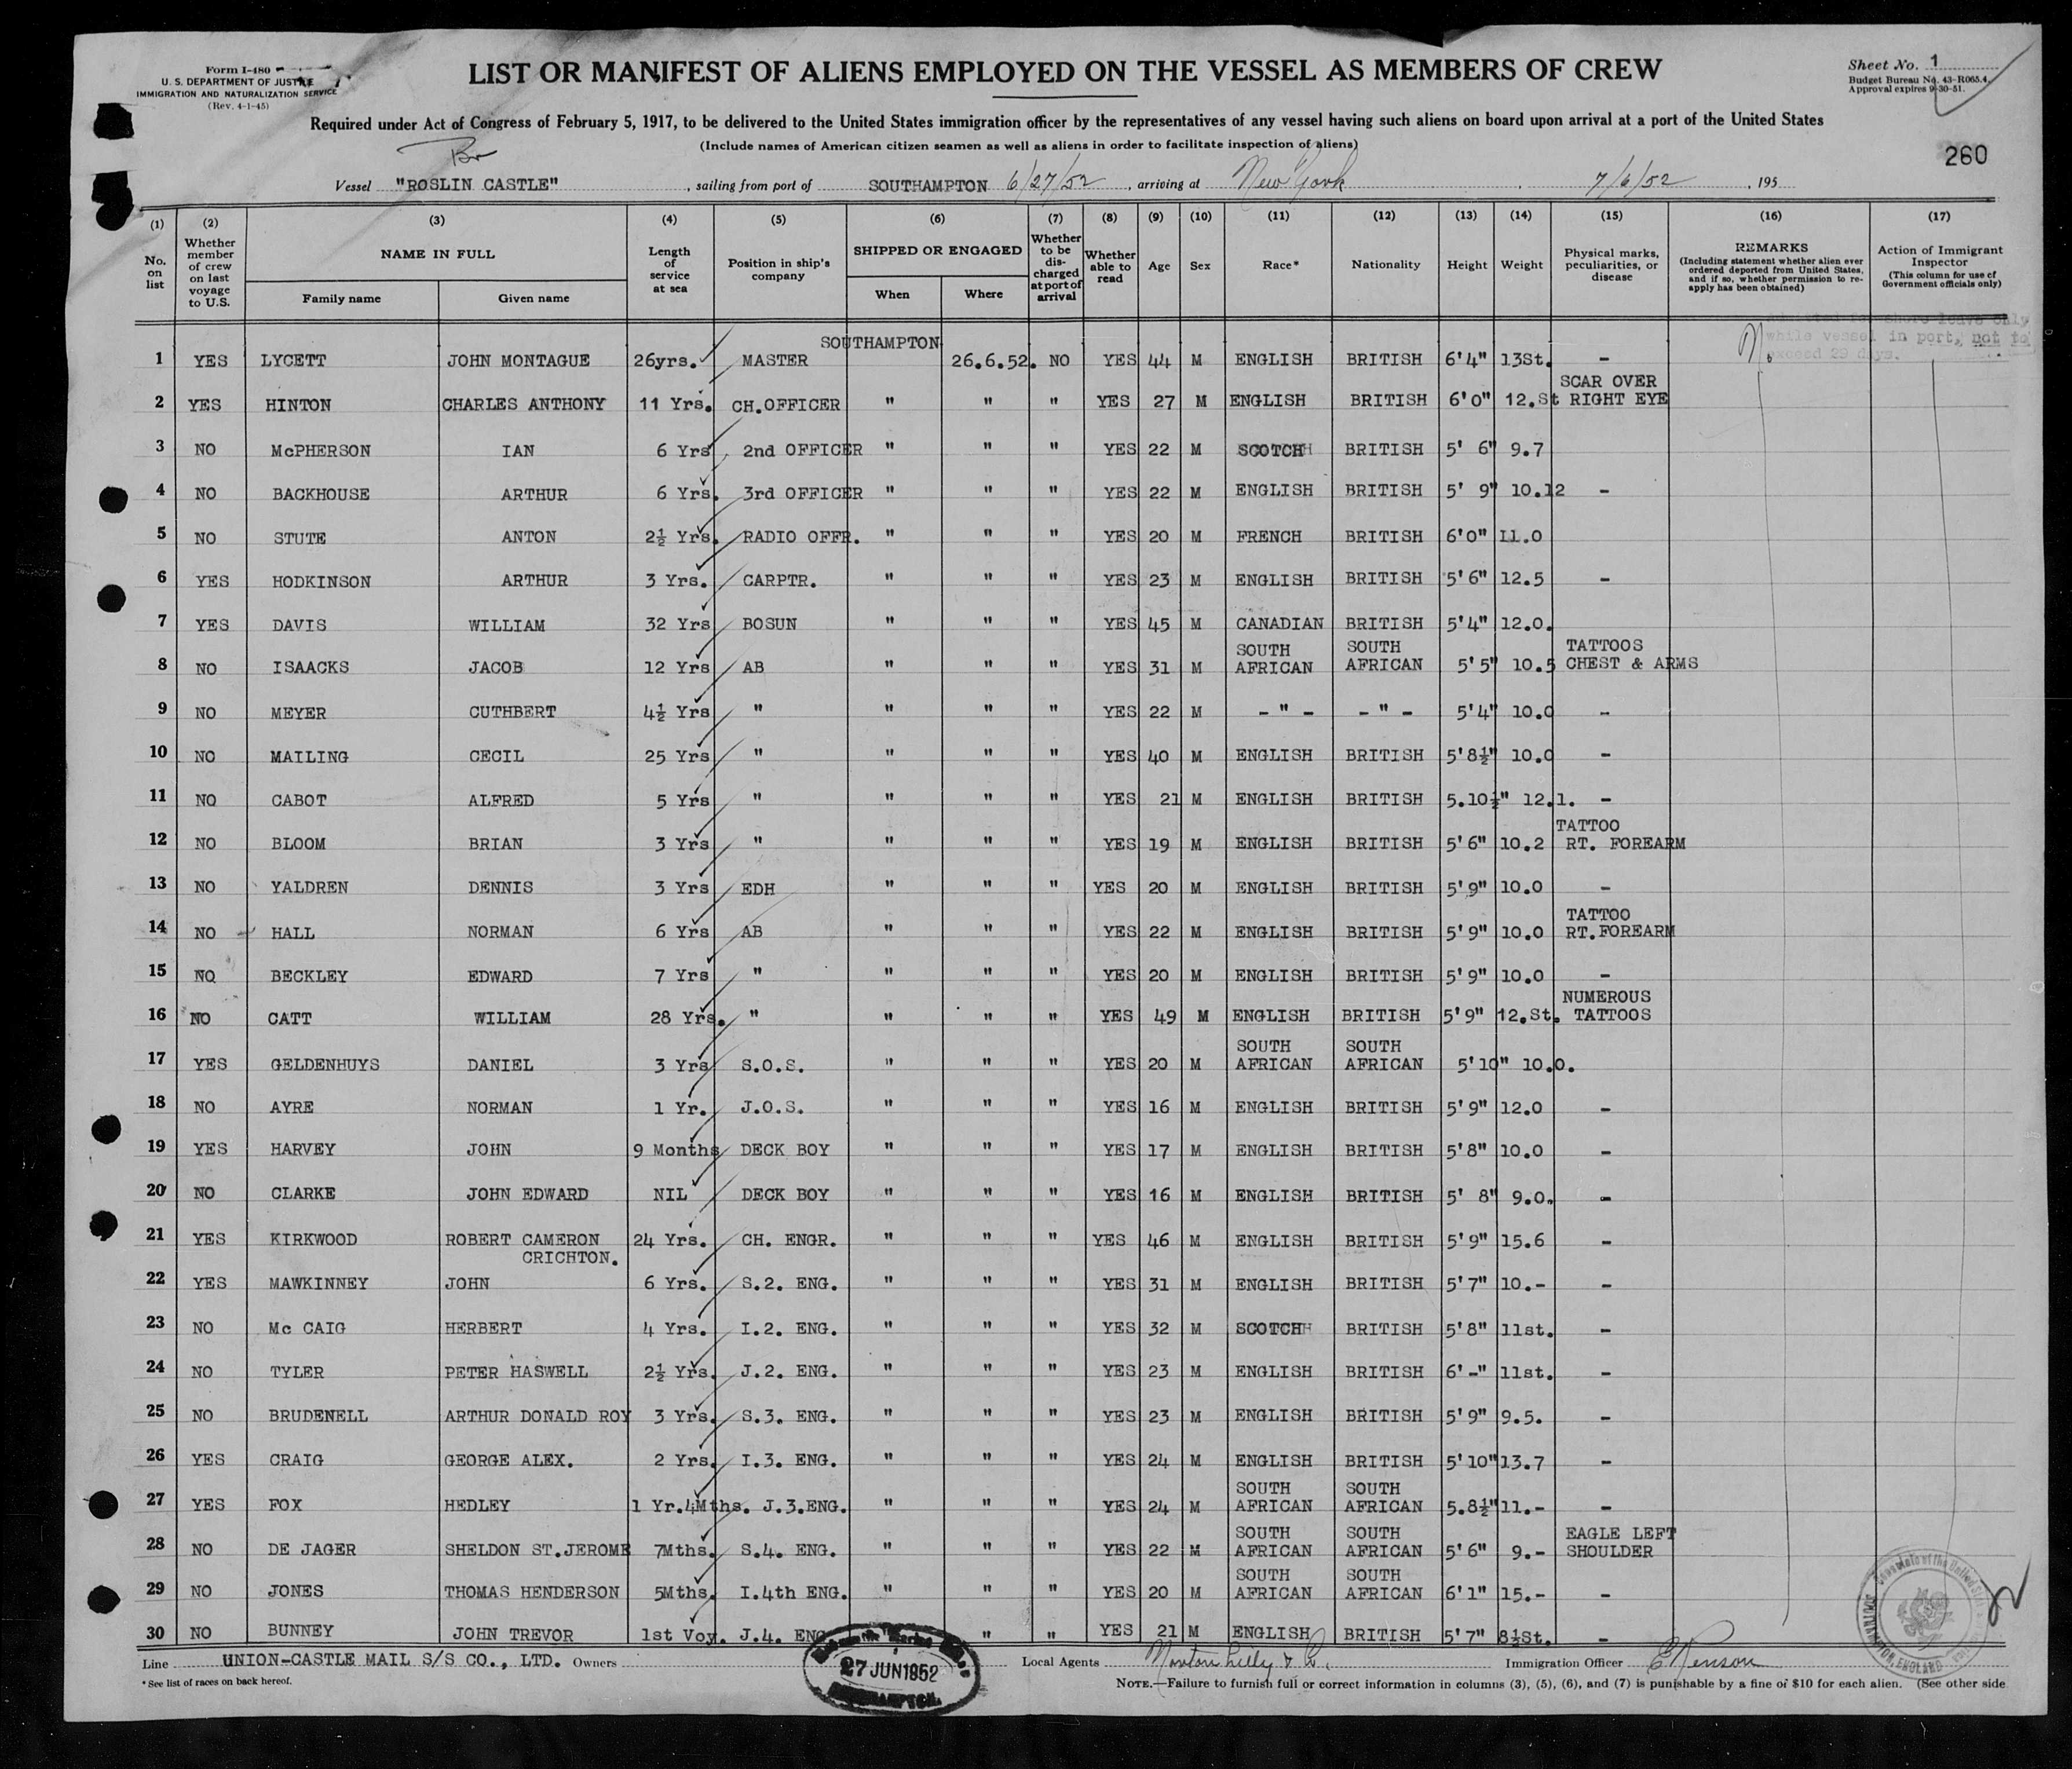 Form I-480
U. S. DEPARTMENT OF JUSTICE
IMMIGRATION AND NATURALIZATION SERVICE
(Rev. 4-1-45)
LIST OR MANIFEST OF ALIENS EMPLOYED ON THE VESSEL AS MEMBERS OF CREW
Sheet No. 1
Budget Bureau No. 43-R065.4.
Approval expires 9-30-51.
Required under Act of Congress of February 5, 1917, to be delivered to the United States immigration officer by the representatives of any vessel having such aliens on board upon arrival at a port of the United States
(Include names of American citizen seamen as well as aliens in order to facilitate inspection of aliens)
Br
260
Vessel "ROSLIN CASTLE", sailing from port of SOUTHAMPTON 6/27/52, arriving at New York 7/6/52, 195
(1) No. on list
(2) Whether member of crew on last voyage to U.S.
(3) NAME IN FULL Family name Given name
(4) Length of service at sea
(5) Position in ship's company
(6) SHIPPED OR ENGAGED When Where
(7) Whether to be discharged at port of arrival
(8) Whether able to read
(9) Age
(10) Sex
(11) Race*
(12) Nationality
(13) Height
(14) Weight
(15) Physical marks, peculiarities, or disease
(16) REMARKS (Including statement whether alien ever ordered deported from United States, and if so, whether permission to re-apply has been obtained)
(17) Action of Immigrant Inspector (This column for use of Government officials only)
shore leave only
while vessel in port, not to
exceed 29 days.
1 YES LYCETT JOHN MONTAGUE 26yrs. MASTER SOUTHAMPTON 26.6.52. NO YES 44 M ENGLISH BRITISH 6'4" 13St. -
2 YES HINTON CHARLES ANTHONY 11 Yrs. CH.OFFICER " " " YES 27 M ENGLISH BRITISH 6'0" 12.St SCAR OVER RIGHT EYE
3 NO McPHERSON IAN 6 Yrs 2nd OFFICER " " " YES 22 M SCOTCH BRITISH 5' 6" 9.7
4 NO BACKHOUSE ARTHUR 6 Yrs. 3rd OFFICER " " " YES 22 M ENGLISH BRITISH 5' 9" 10.12 -
5 NO STUTE ANTON 2½ Yrs. RADIO OFFR. " " " YES 20 M FRENCH BRITISH 6'0" 11.0
6 YES HODKINSON ARTHUR 3 Yrs. CARPTR. " " " YES 23 M ENGLISH BRITISH 5'6" 12.5 -
7 YES DAVIS WILLIAM 32 Yrs BOSUN " " " YES 45 M CANADIAN BRITISH 5'4" 12.0.
8 NO ISAACKS JACOB 12 Yrs AB " " " YES 31 M SOUTH AFRICAN SOUTH AFRICAN 5'5" 10.5 TATTOOS CHEST & ARMS
9 NO MEYER CUTHBERT 4½ Yrs " " " " YES 22 M - " - - " - 5'4" 10.0 -
10 NO MAILING CECIL 25 Yrs " " " " YES 40 M ENGLISH BRITISH 5'8½" 10.0 -
11 NO CABOT ALFRED 5 Yrs " " " " YES 21 M ENGLISH BRITISH 5.10½" 12.1. -
12 NO BLOOM BRIAN 3 Yrs " " " " YES 19 M ENGLISH BRITISH 5'6" 10.2 TATTOO RT. FOREARM
13 NO YALDREN DENNIS 3 Yrs EDH " " " YES 20 M ENGLISH BRITISH 5'9" 10.0 -
14 NO HALL NORMAN 6 Yrs AB " " " YES 22 M ENGLISH BRITISH 5'9" 10.0 TATTOO RT.FOREARM
15 NO BECKLEY EDWARD 7 Yrs " " " " YES 20 M ENGLISH BRITISH 5'9" 10.0 -
16 NO CATT WILLIAM 28 Yrs. " " " " YES 49 M ENGLISH BRITISH 5'9" 12.St. NUMEROUS TATTOOS
17 YES GELDENHUYS DANIEL 3 Yrs S.O.S. " " " YES 20 M SOUTH AFRICAN SOUTH AFRICAN 5'10" 10.0.
18 NO AYRE NORMAN 1 Yr. J.O.S. " " " YES 16 M ENGLISH BRITISH 5'9" 12.0 -
19 YES HARVEY JOHN 9 Months DECK BOY " " " YES 17 M ENGLISH BRITISH 5'8" 10.0 -
20 NO CLARKE JOHN EDWARD NIL DECK BOY " " " YES 16 M ENGLISH BRITISH 5' 8" 9.0. -
21 YES KIRKWOOD ROBERT CAMERON CRICHTON. 24 Yrs. CH. ENGR. " " " YES 46 M ENGLISH BRITISH 5'9" 15.6 -
22 YES MAWKINNEY JOHN 6 Yrs. S.2. ENG. " " " YES 31 M ENGLISH BRITISH 5'7" 10.- -
23 NO Mc CAIG HERBERT 4 Yrs. I.2. ENG. " " " YES 32 M SCOTCH BRITISH 5'8" 11st. -
24 NO TYLER PETER HASWELL 2½ Yrs. J.2. ENG. " " " YES 23 M ENGLISH BRITISH 6'-" 11st. -
25 NO BRUDENELL ARTHUR DONALD ROY 3 Yrs. S.3. ENG. " " " YES 23 M ENGLISH BRITISH 5'9" 9.5. -
26 YES CRAIG GEORGE ALEX. 2 Yrs. I.3. ENG. " " " YES 24 M ENGLISH BRITISH 5'10" 13.7 -
27 YES FOX HEDLEY 1 Yr.4Mths. J.3.ENG. " " " YES 24 M SOUTH AFRICAN SOUTH AFRICAN 5.8½" 11.- -
28 NO DE JAGER SHELDON ST.JEROME 7Mths. S.4. ENG. " " " YES 22 M SOUTH AFRICAN SOUTH AFRICAN 5'6" 9.- EAGLE LEFT SHOULDER
29 NO JONES THOMAS HENDERSON 5Mths. I.4th ENG. " " " YES 20 M SOUTH AFRICAN SOUTH AFRICAN 6'1" 15.- -
30 NO BUNNEY JOHN TREVOR 1st Voy. J.4. ENG " " YES 21 M ENGLISH BRITISH 5'7" 8½St. -
Line UNION-CASTLE MAIL S/S CO., LTD. Owners
27 JUN 1952
Local Agents Norton Lilly & Co.
Immigration Officer
SOUTHAMPTON, ENGLAND
* See list of races on back hereof.
NOTE.—Failure to furnish full or correct information in columns (3), (5), (6), and (7) is punishable by a fine of $10 for each alien. (See other side